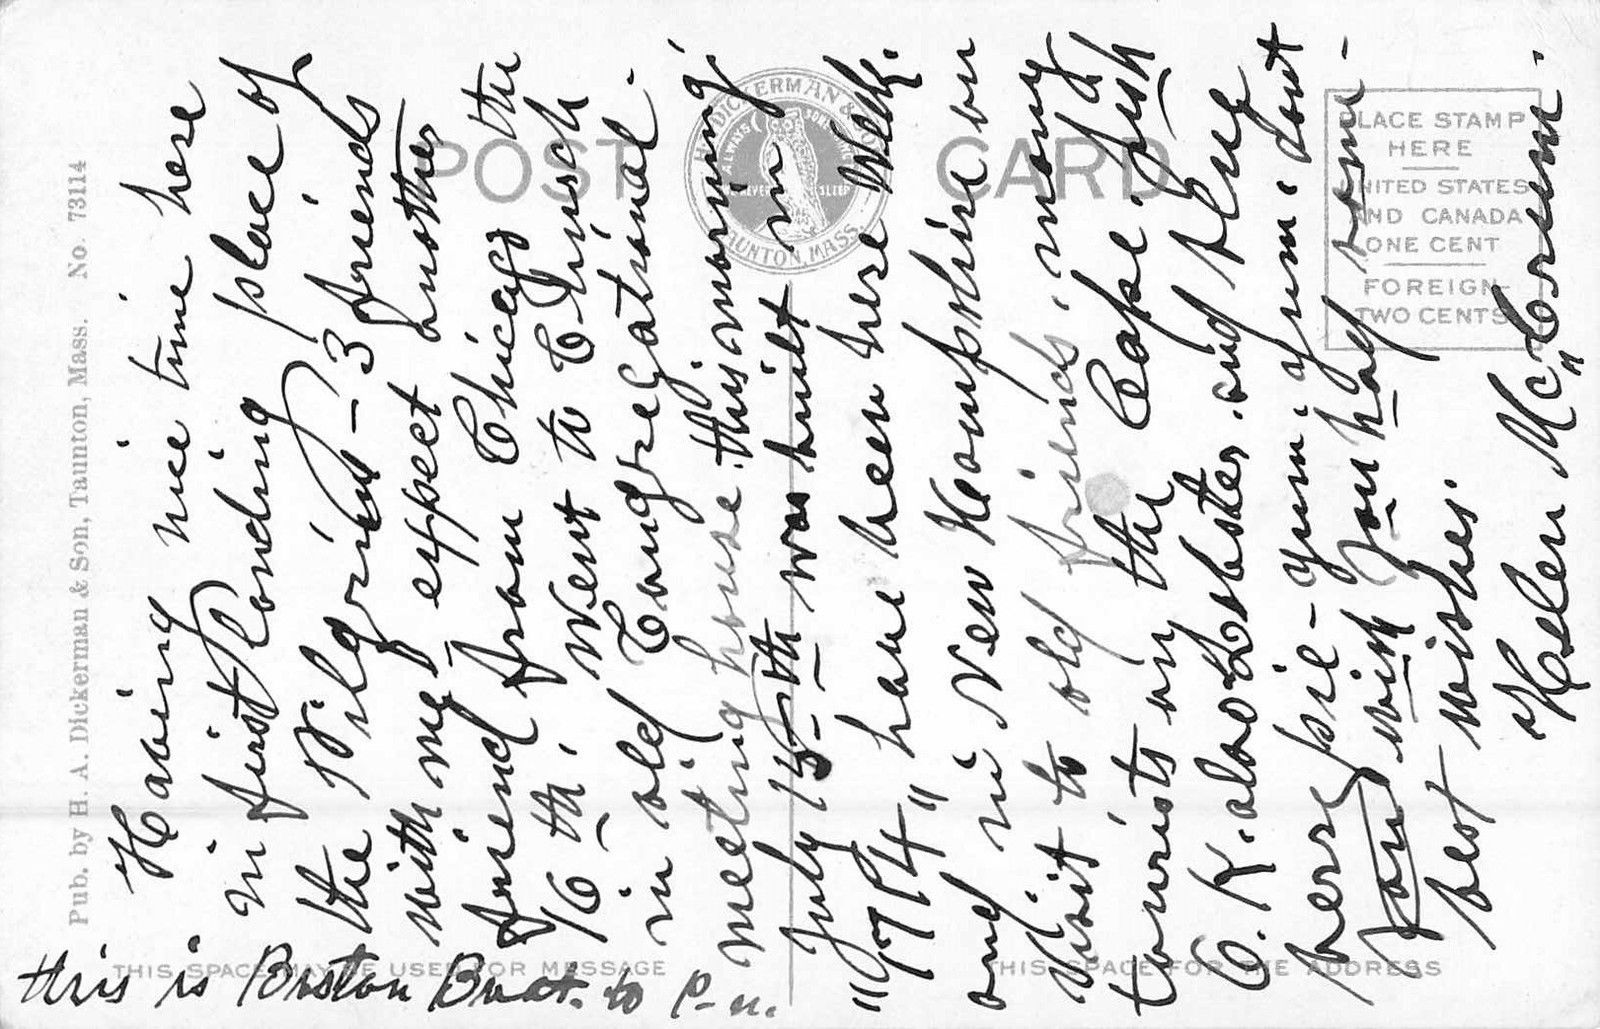 Pub. by H. A. Dickerman & Son, Taunton, Mass. No. 73114
POST CARD
H. A. DICKERMAN & SON
TAUNTON, MASS.
ALWAYS
NEVER SLEEP
PLACE STAMP
HERE
UNITED STATES
AND CANADA
ONE CENT
FOREIGN
TWO CENTS
THIS SPACE MAY BE USED FOR MESSAGE
THIS SPACE FOR THE ADDRESS
Having nice time here
in first Landing place of
the Pilgrims - 3 friends
with me, expect another
friend from Chicago the
16 th. Went to Church
in old Congregational
meeting house. this morning,
July 15-th was built in
"1714" have been here Wells.
and in New Hampshire on
visit to old friends. many
tourists on the Cape. fish
O.K. also Lobster. and blue
berry pie - yum. yum. dont
you wish you had some -
best wishes.
Helen McCorum.
this is Boston Boat. to P-n.